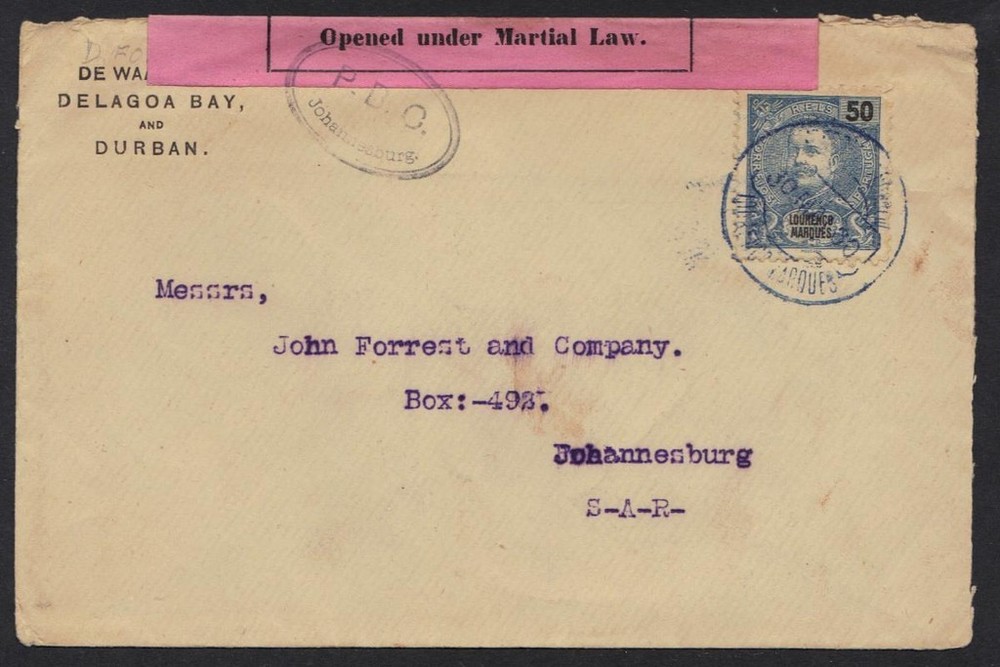 Opened under Martial Law.
DE WA
DELAGOA BAY,
AND
DURBAN.
P. B. C.
Johannesburg.
REIS
50
CORREIOS
LOURENÇO
MARQUES
MARQUES
Messrs,
John Forrest and Company.
Box:-492.
Johannesburg
S-A-R-